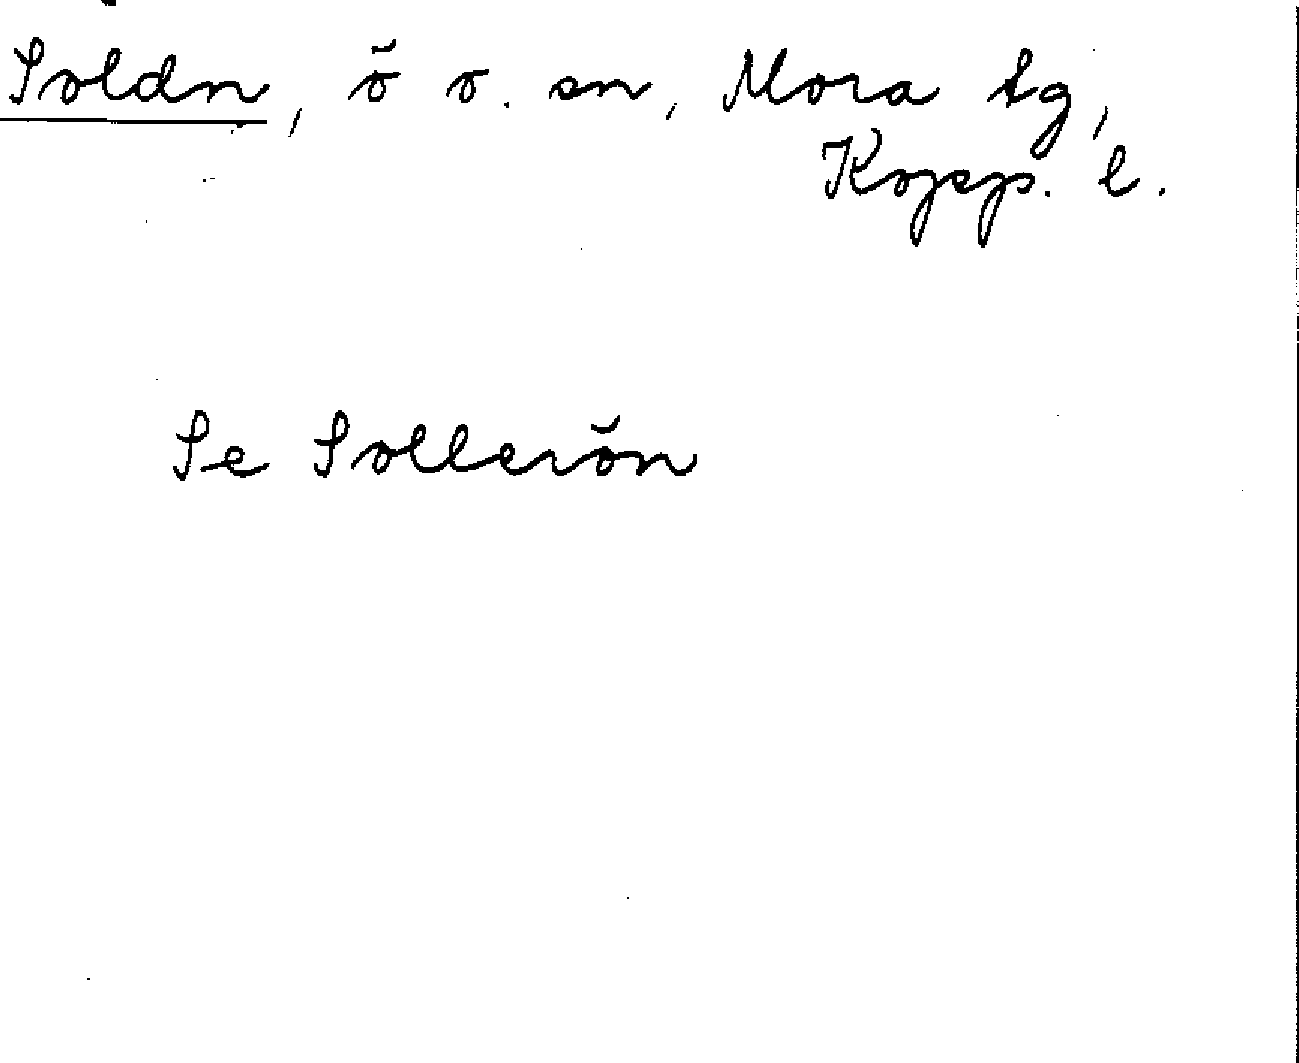 Soldn, ö o. sn, Mora tg,
Kopp. l.
Se Sollerön